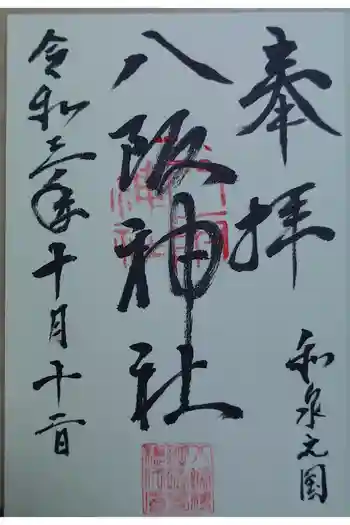 奉拝
和泉之國
八阪神社
令和三年十月十二日